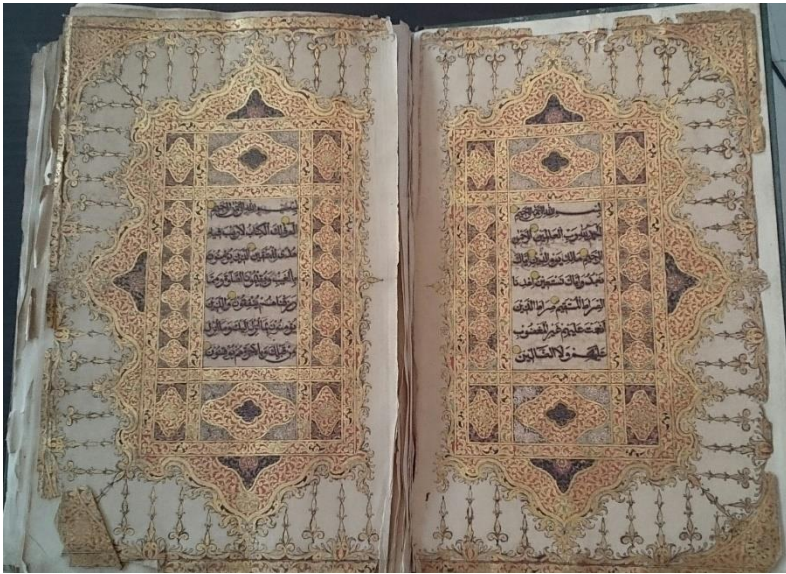 بسم الله الرحمن الرحيم
الحمد لله رب العالمين الرحمن
الرحيم مالك يوم الدين إياك
نعبد وإياك نستعين اهدنا
الصراط المستقيم صراط الذين
أنعمت عليهم غير المغضوب
عليهم ولا الضالين
بسم الله الرحمن الرحيم
الم ذلك الكتاب لا ريب فيه
هدى للمتقين الذين يؤمنون
بالغيب ويقيمون الصلوة ومما
رزقناهم ينفقون والذين
يؤمنون بما أنزل إليك وما أنزل
من قبلك وبالآخرة هم يوقنون